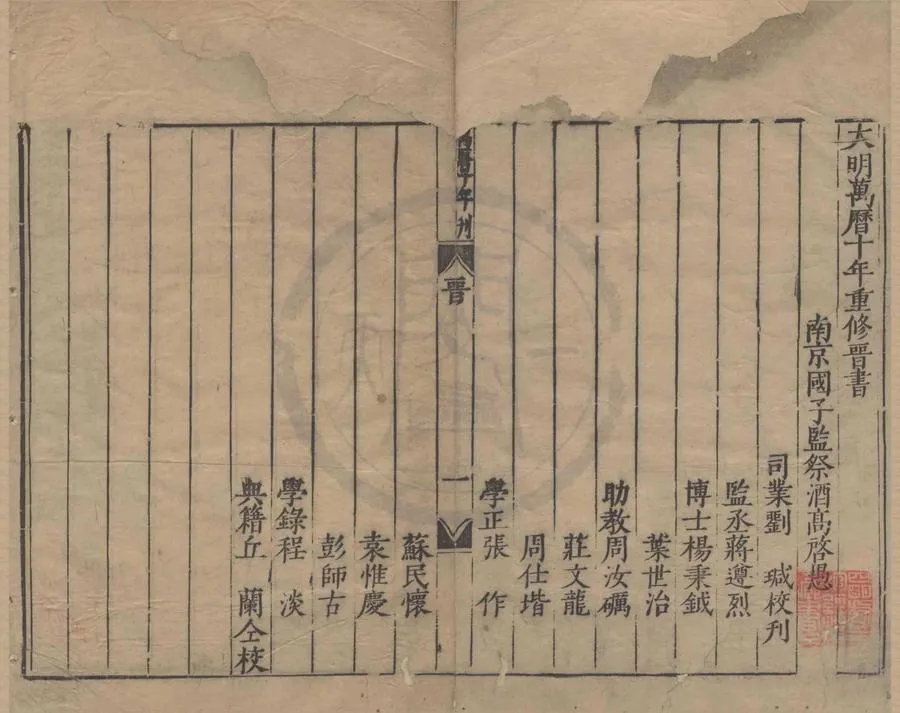 大明萬曆十年重修晉書
南京國子監祭酒高啓愚
司業劉 瑊校刊
監丞蔣遵烈
博士楊秉鉞
葉世治
助教周汝礪
莊文龍
周仕堦
學正張 作
年刊
晉
一
蘇民懷
袁惟慶
彭師古
學錄程 淡
典籍丘 蘭仝校